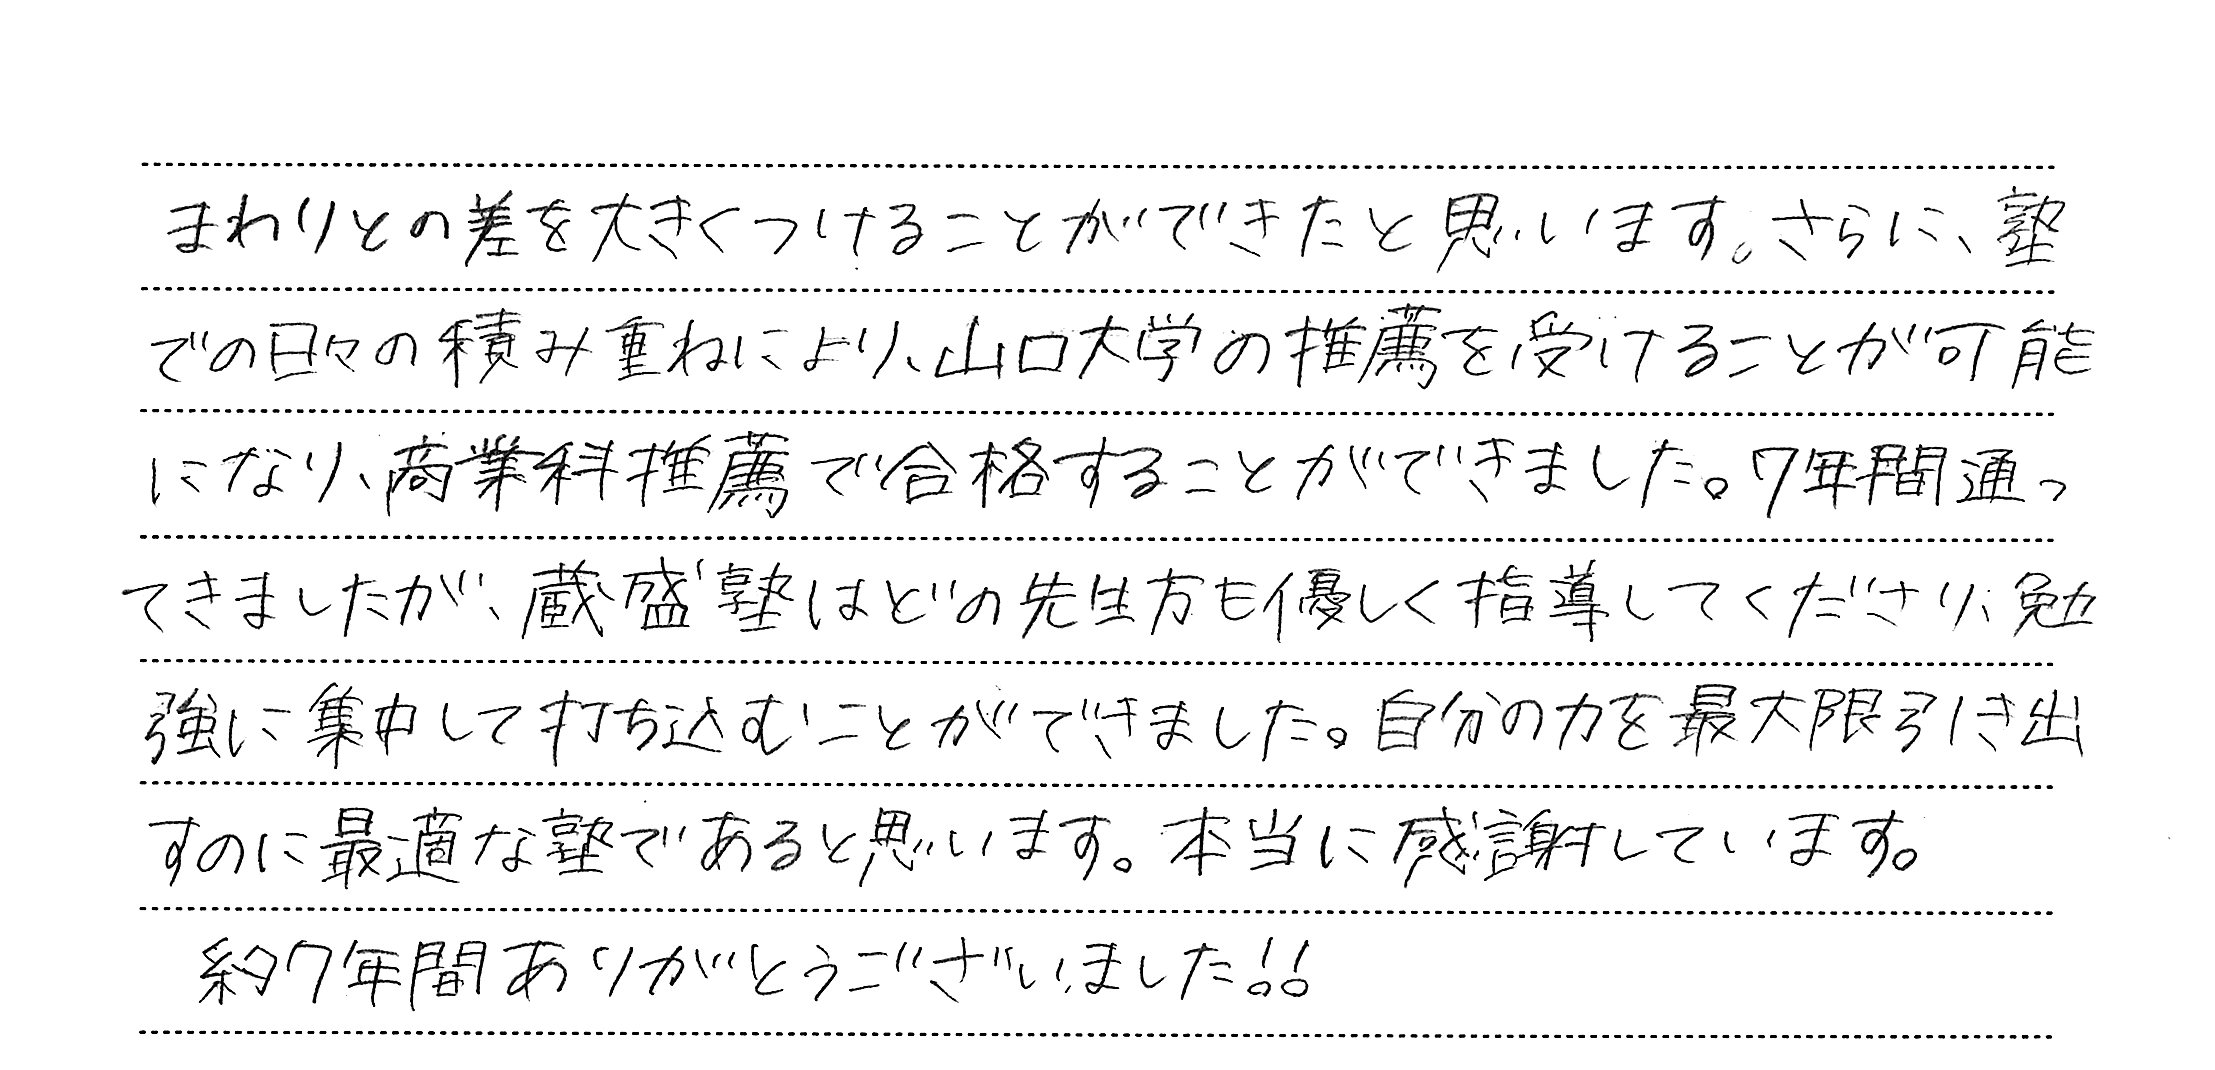 まわりとの差を大きくつけることができたと思います。さらに、塾
での日々の積み重ねにより、山口大学の推薦を受けることが可能
になり、商業科推薦で合格することができました。7年間通っ
てきましたが、蔵盛塾はどの先生方も優しく指導してくださり、勉
強に集中して打ち込むことができました。自分の力を最大限引き出
すのに最適な塾であると思います。本当に感謝しています。
約7年間ありがとうございました!!